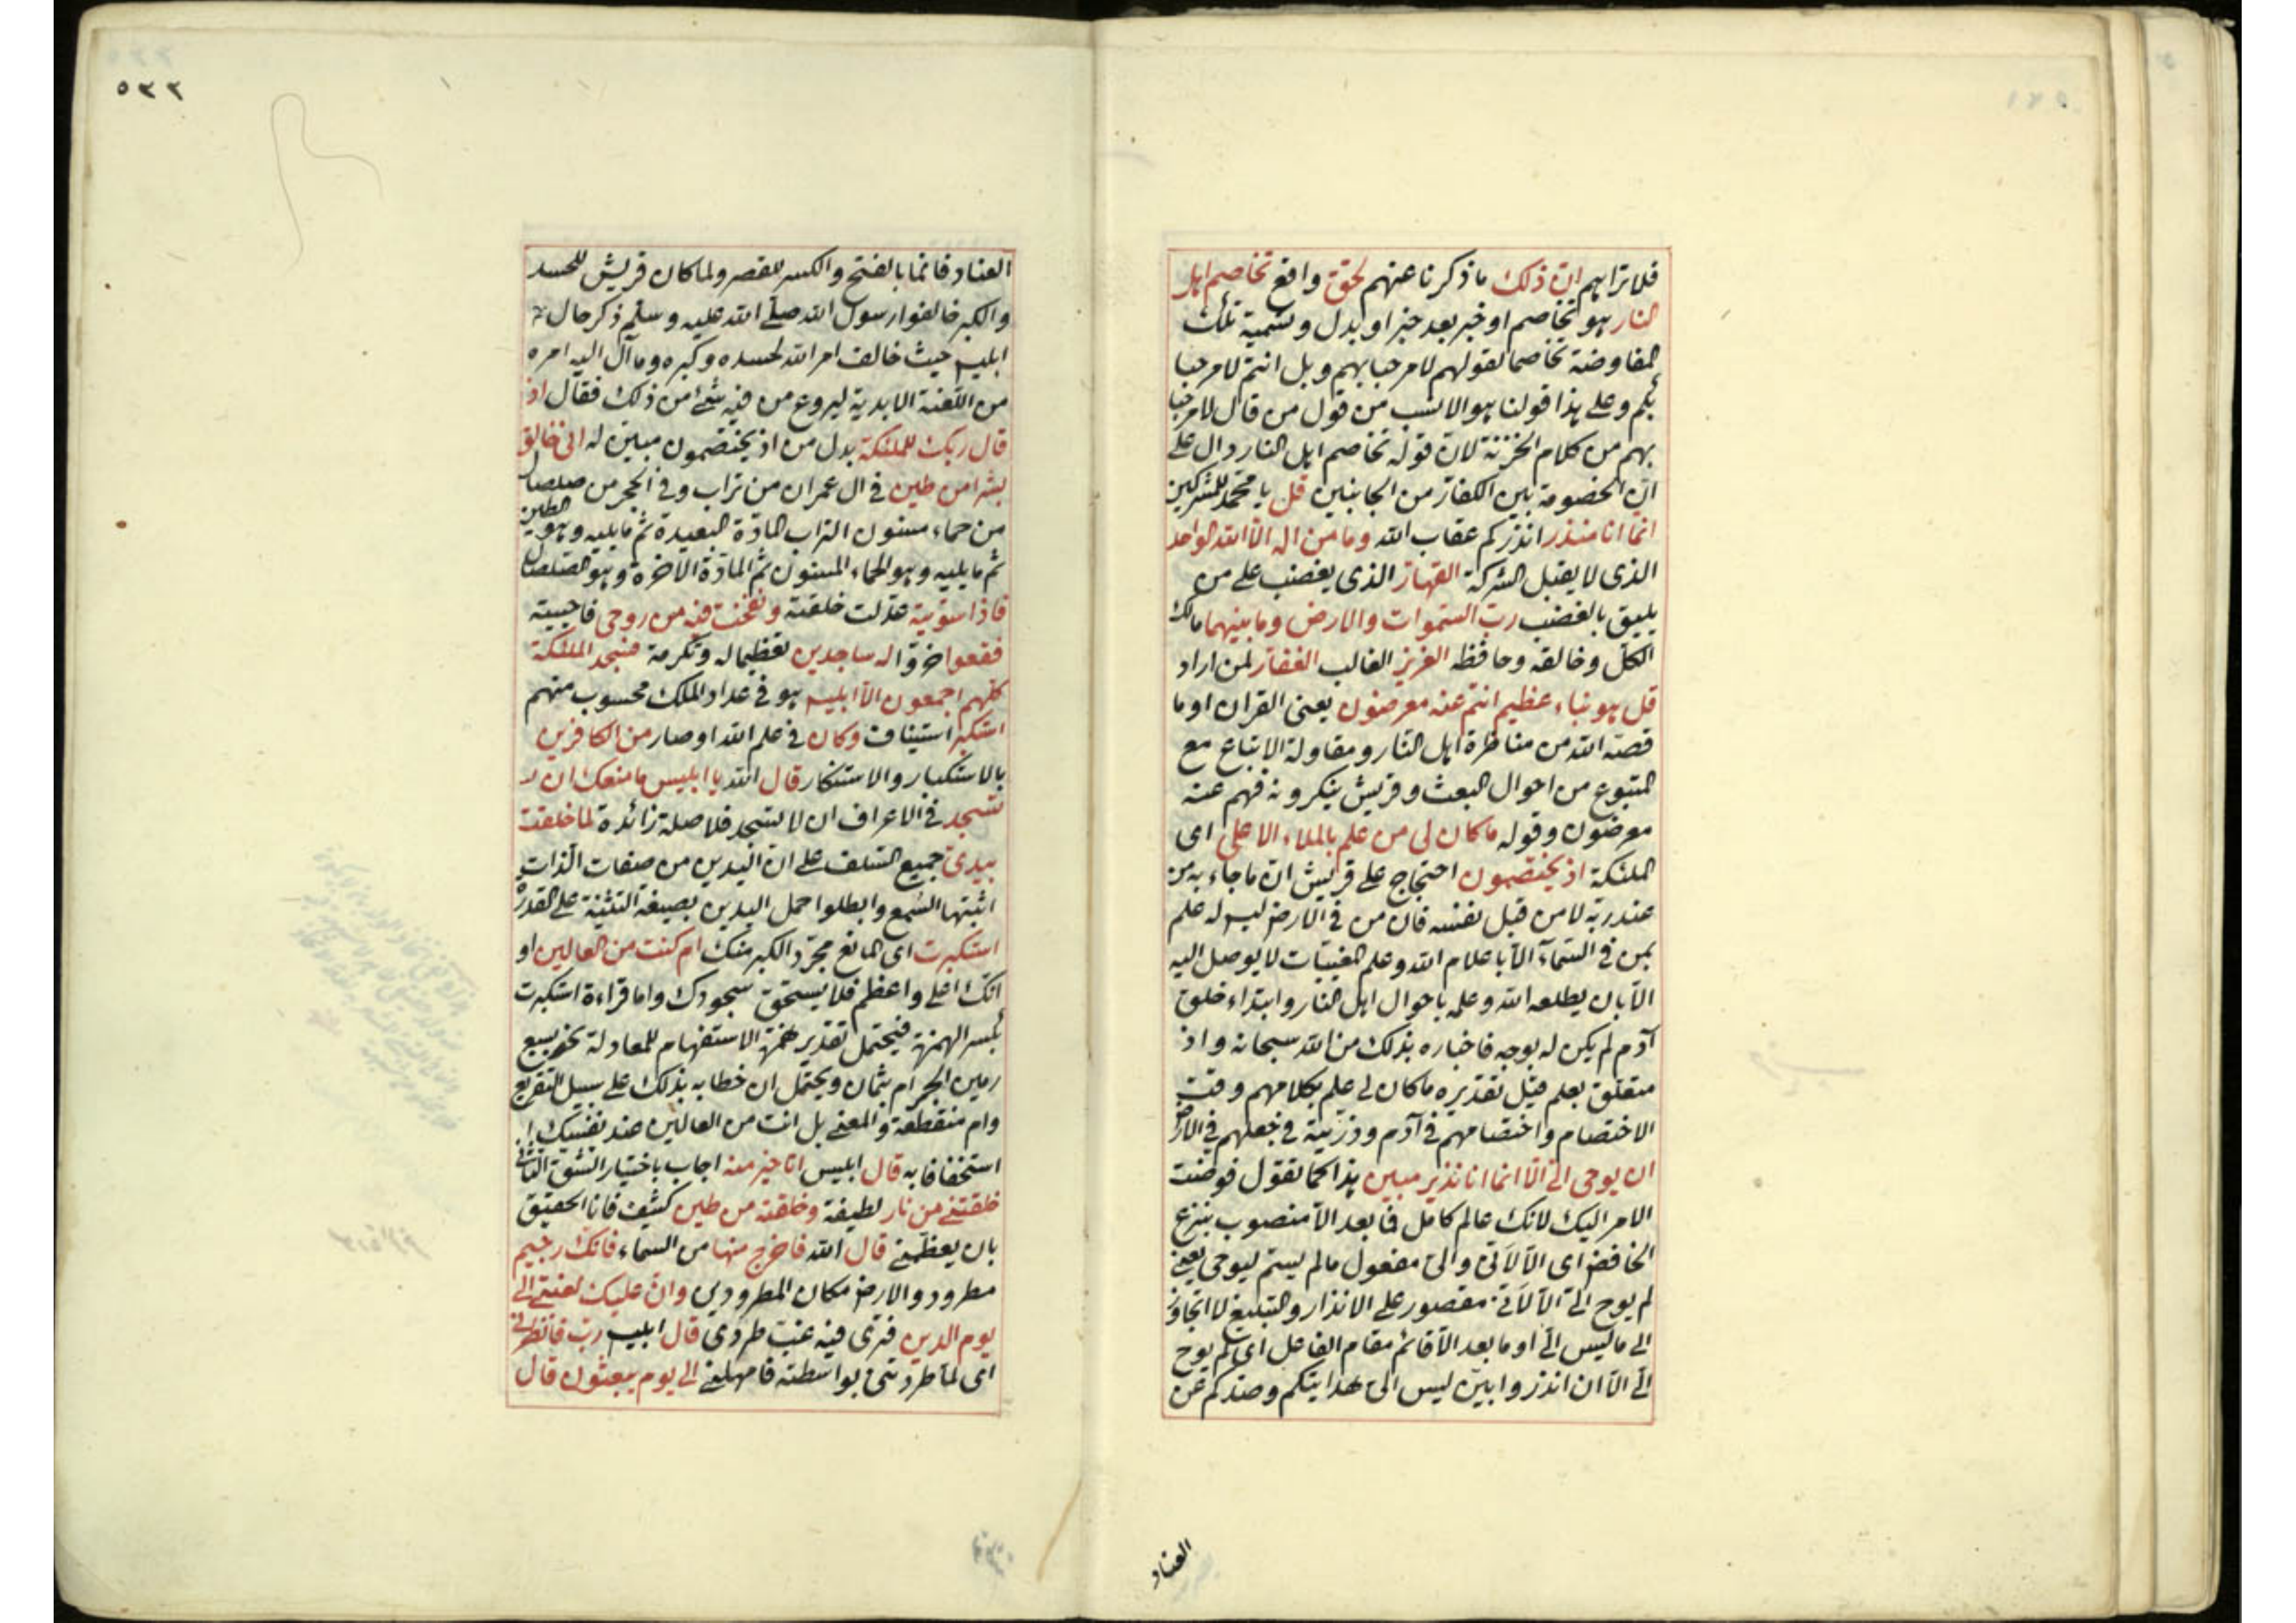 فلا تراهم ان ذلك ما ذكرنا عنهم لحق واقع تخاصم اهل
النار هو تخاصم او خبر بعد خبر او بدل وتسمية تلك
المفاوضة تخاصما لقولهم لا مرحبا بهم وبل انتم لا مرحبا
بكم وعلى هذا قولنا هو الانسب من قول من قال لا مرحبا
بهم من كلام الخزنة لان قوله تخاصم اهل النار دال على
ان الخصومة بين الكفار من الجانبين قل يا محمد للمشركين
انما انا منذر انذركم عقاب الله وما من اله الا الله الواحد
الذى لا يقبل الشركة القهار الذى يغضب على من
يليق بالغضب رب السموات والارض وما بينهما مالك
الكل وخالقه وحافظه العزيز الغالب الغفار لمن اراد
قل هو نباء عظيم انتم عنه معرضون يعنى القران او ما
قصة الله من مناظرة اهل النار ومقاولة الاتباع مع
المتبوع من احوال البعث وقريش ينكرونه فهم عنه
معرضون وقوله ما كان لى من علم بالملاء الاعلى اى
الملئكة اذ يختصمون احتجاج على قريش ان ما جاء به من
عند ربه لا من قبل نفسه فان من فى الارض ليس له علم
بمن فى السماء الا باعلام الله وعلم المغيبات لا يوصل اليه
الا بان يطلعه الله وعلمه باحوال اهل النار وابتداء خلق
آدم لم يكن له بوجه فاخباره بذلك من الله سبحانه واذ
متعلق بعلم قيل تقديره ما كان لى علم بكلامهم وقت
الاختصام واختصامهم فى آدم وذريته فى جعلهم فى الارض
ان يوحى الى الا انما انا نذير مبين هذا كما تقول فوضت
الامر اليك لانك عالم كامل فما بعد الا منصوب بنزع
الخافض اى الا لانى والى مفعول ما لم يسم ليوحى يعنى
لم يوح الى الا لانى مقصور على الانذار والتبليغ لا اتجاوز
الى ما ليس الى او ما بعد الا قائم مقام الفاعل اى لم يوح
الى الا ان انذر وابين ليس الى هدايتكم وصدكم عن
العناد
٥٣٢
العناد فانما بالفتح والكسر للقصر ولما كان قريش للحسد
والكبر خالفوا رسول الله صلى الله عليه وسلم ذكر حال
ابليس حيث خالف امر الله لحسده وكبره وما آل اليه امره
من اللعنة الابدية ليروع من فيه شئ من ذلك فقال اذ
قال ربك للملئكة بدل من اذ يختصمون مبين له انى خالق
بشرا من طين فى ال عمران من تراب وفى الحجر من صلصال
من حماء مسنون التراب المادة البعيدة ثم ما يليه وهو الطين
ثم ما يليه وهو الحماء المسنون ثم المادة الاخرة وهو الصلصال
فاذا سويته عدلت خلقته ونفخت فيه من روحى فاحييته
فقعوا خروا له ساجدين تعظيما له وتكرمة فسجد الملئكة
كلهم اجمعون الا ابليس هو فى عداد الملك محسوب منهم
استكبر استيناف وكان فى علم الله او صار من الكافرين
بالاستكبار والاستنكار قال الله يا ابليس ما منعك ان
تسجد فى الاعراف ان لا تسجد فلا صلة زائدة لما خلقت
بيدى جميع السلف على ان اليدين من صفات الذات
اثبتها السمع وابطلوا حمل اليدين بصيغة التثنية على القدرة
استكبرت اى المانع مجرد الكبر منك ام كنت من العالين او
انك اعلى واعظم فلا يستحق سجودك واما قراءة استكبرت
بكسر الهمزة فيحتمل تقدير همزة الاستفهام للمعادلة نحو بسبع
رمين الجمر ام بثمان ويحتمل ان خطابه بذلك على سبيل التقريع
وام منقطعة والمعنى بل انت من العالين عند نفسك
استخفافا به قال ابليس انا خير منه اجاب باختيار الشق الثانى
خلقتنى من نار لطيفة وخلقته من طين كثيف فانا الحقيق
بان يعظمنى قال الله فاخرج منها من السماء فانك رجيم
مطرود والارض مكان المطرودين وان عليك لعنتى الى
يوم الدين فترى فيه غب طردى قال ابليس رب فانظرنى
اى لما طردتنى بواسطته فامهلنى الى يوم يبعثون قال